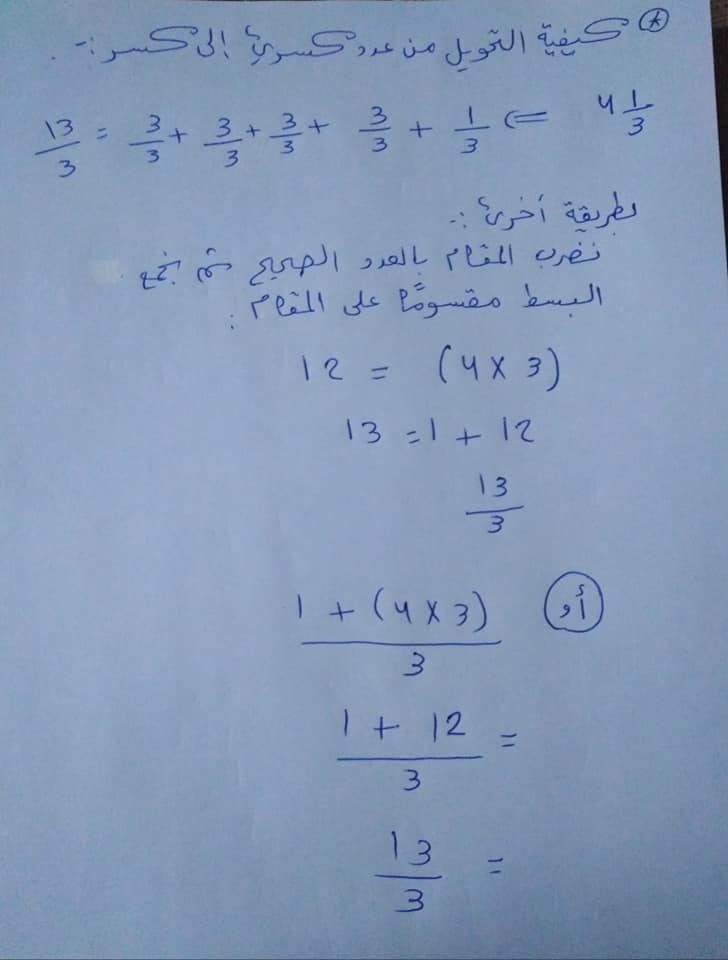 * كيفية التحويل من عدد كسري إلى كسر :-
4 1/3 <= 1/3 + 3/3 + 3/3 + 3/3 + 3/3 = 13/3
بطريقة أخرى :-
نضرب المقام بالعدد الصحيح ثم نجمع
البسط مقسومًا على المقام :
(4 x 3) = 12
12 + 1 = 13
13/3
أو (1 + (4 x 3))/3
= (1 + 12)/3
= 13/3